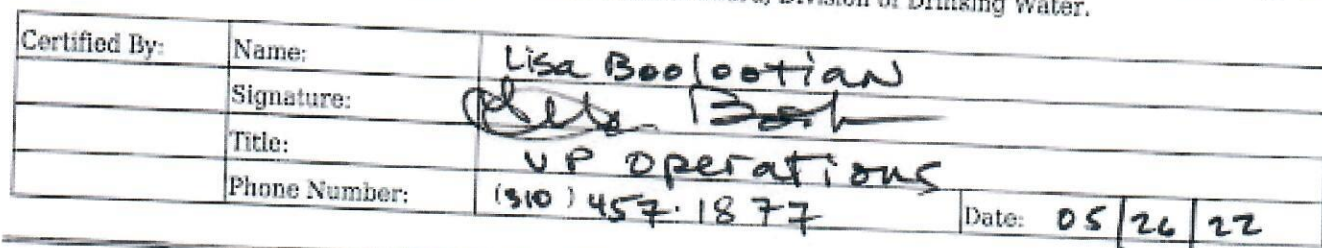 Division of Drinking Water.
Certified By: Name: Lisa Boolootian
Signature:
Title: VP Operations
Phone Number: (310) 457.1877 Date: 05 26 22